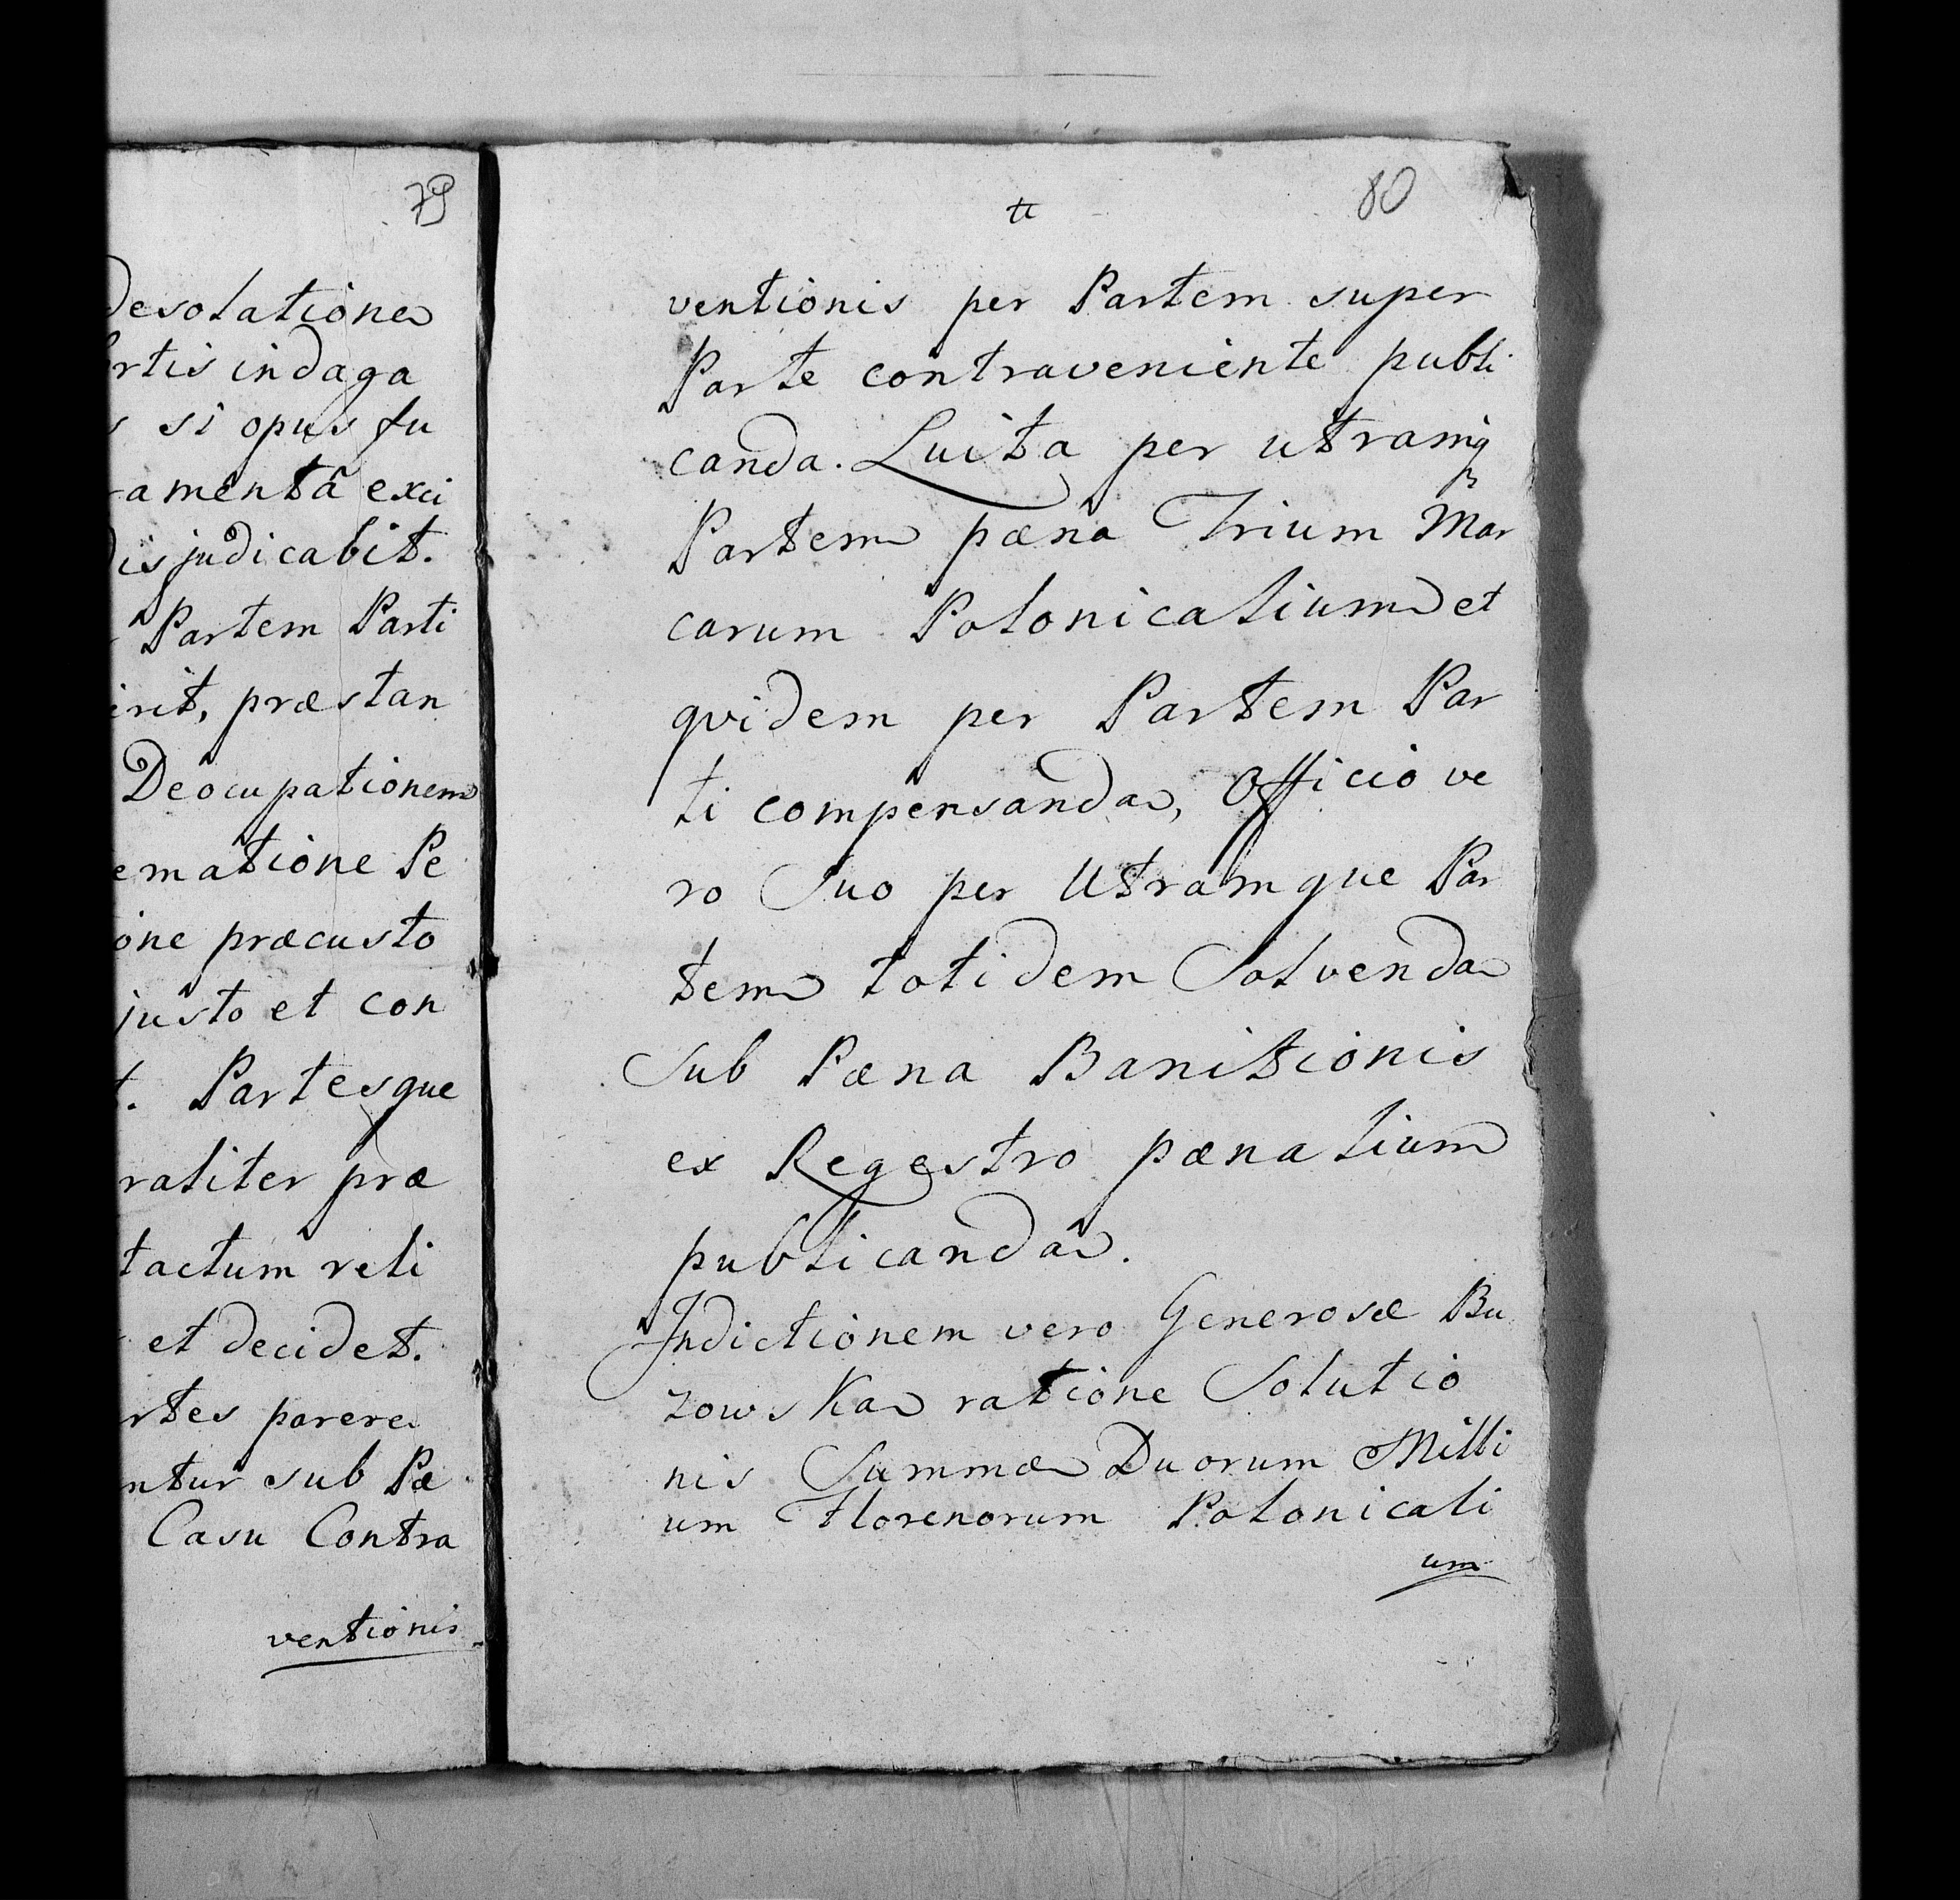 79
Desolatione
rtis indaga
s si opus fu
amenta exci
dis judicabit.
Partem Parti
irit, præstan
Deocupationem
ematione Pe
one præcusto
justo et con
t. Partesque
raliter præ
tactum reli
et decidet.
rtes parere
ntur sub Pæ
Casu Contra
ventionis
80
ventionis per Partem super
Parte contraveniente publi
canda. Luita per utramq
Partem pæna Trium Mar
carum Polonicalium et
qvidem per Partem Par
ti compensanda, Officio ve
ro Suo per Utramque Par
tem totidem Solvenda
Sub Pæna Banitionis
ex Regestro pænalium
publicanda.
Indictionem vero Generosæ Bu
zowska ratione Solutio
nis Summæ Duorum Milli
um Florenorum Polonicali
um